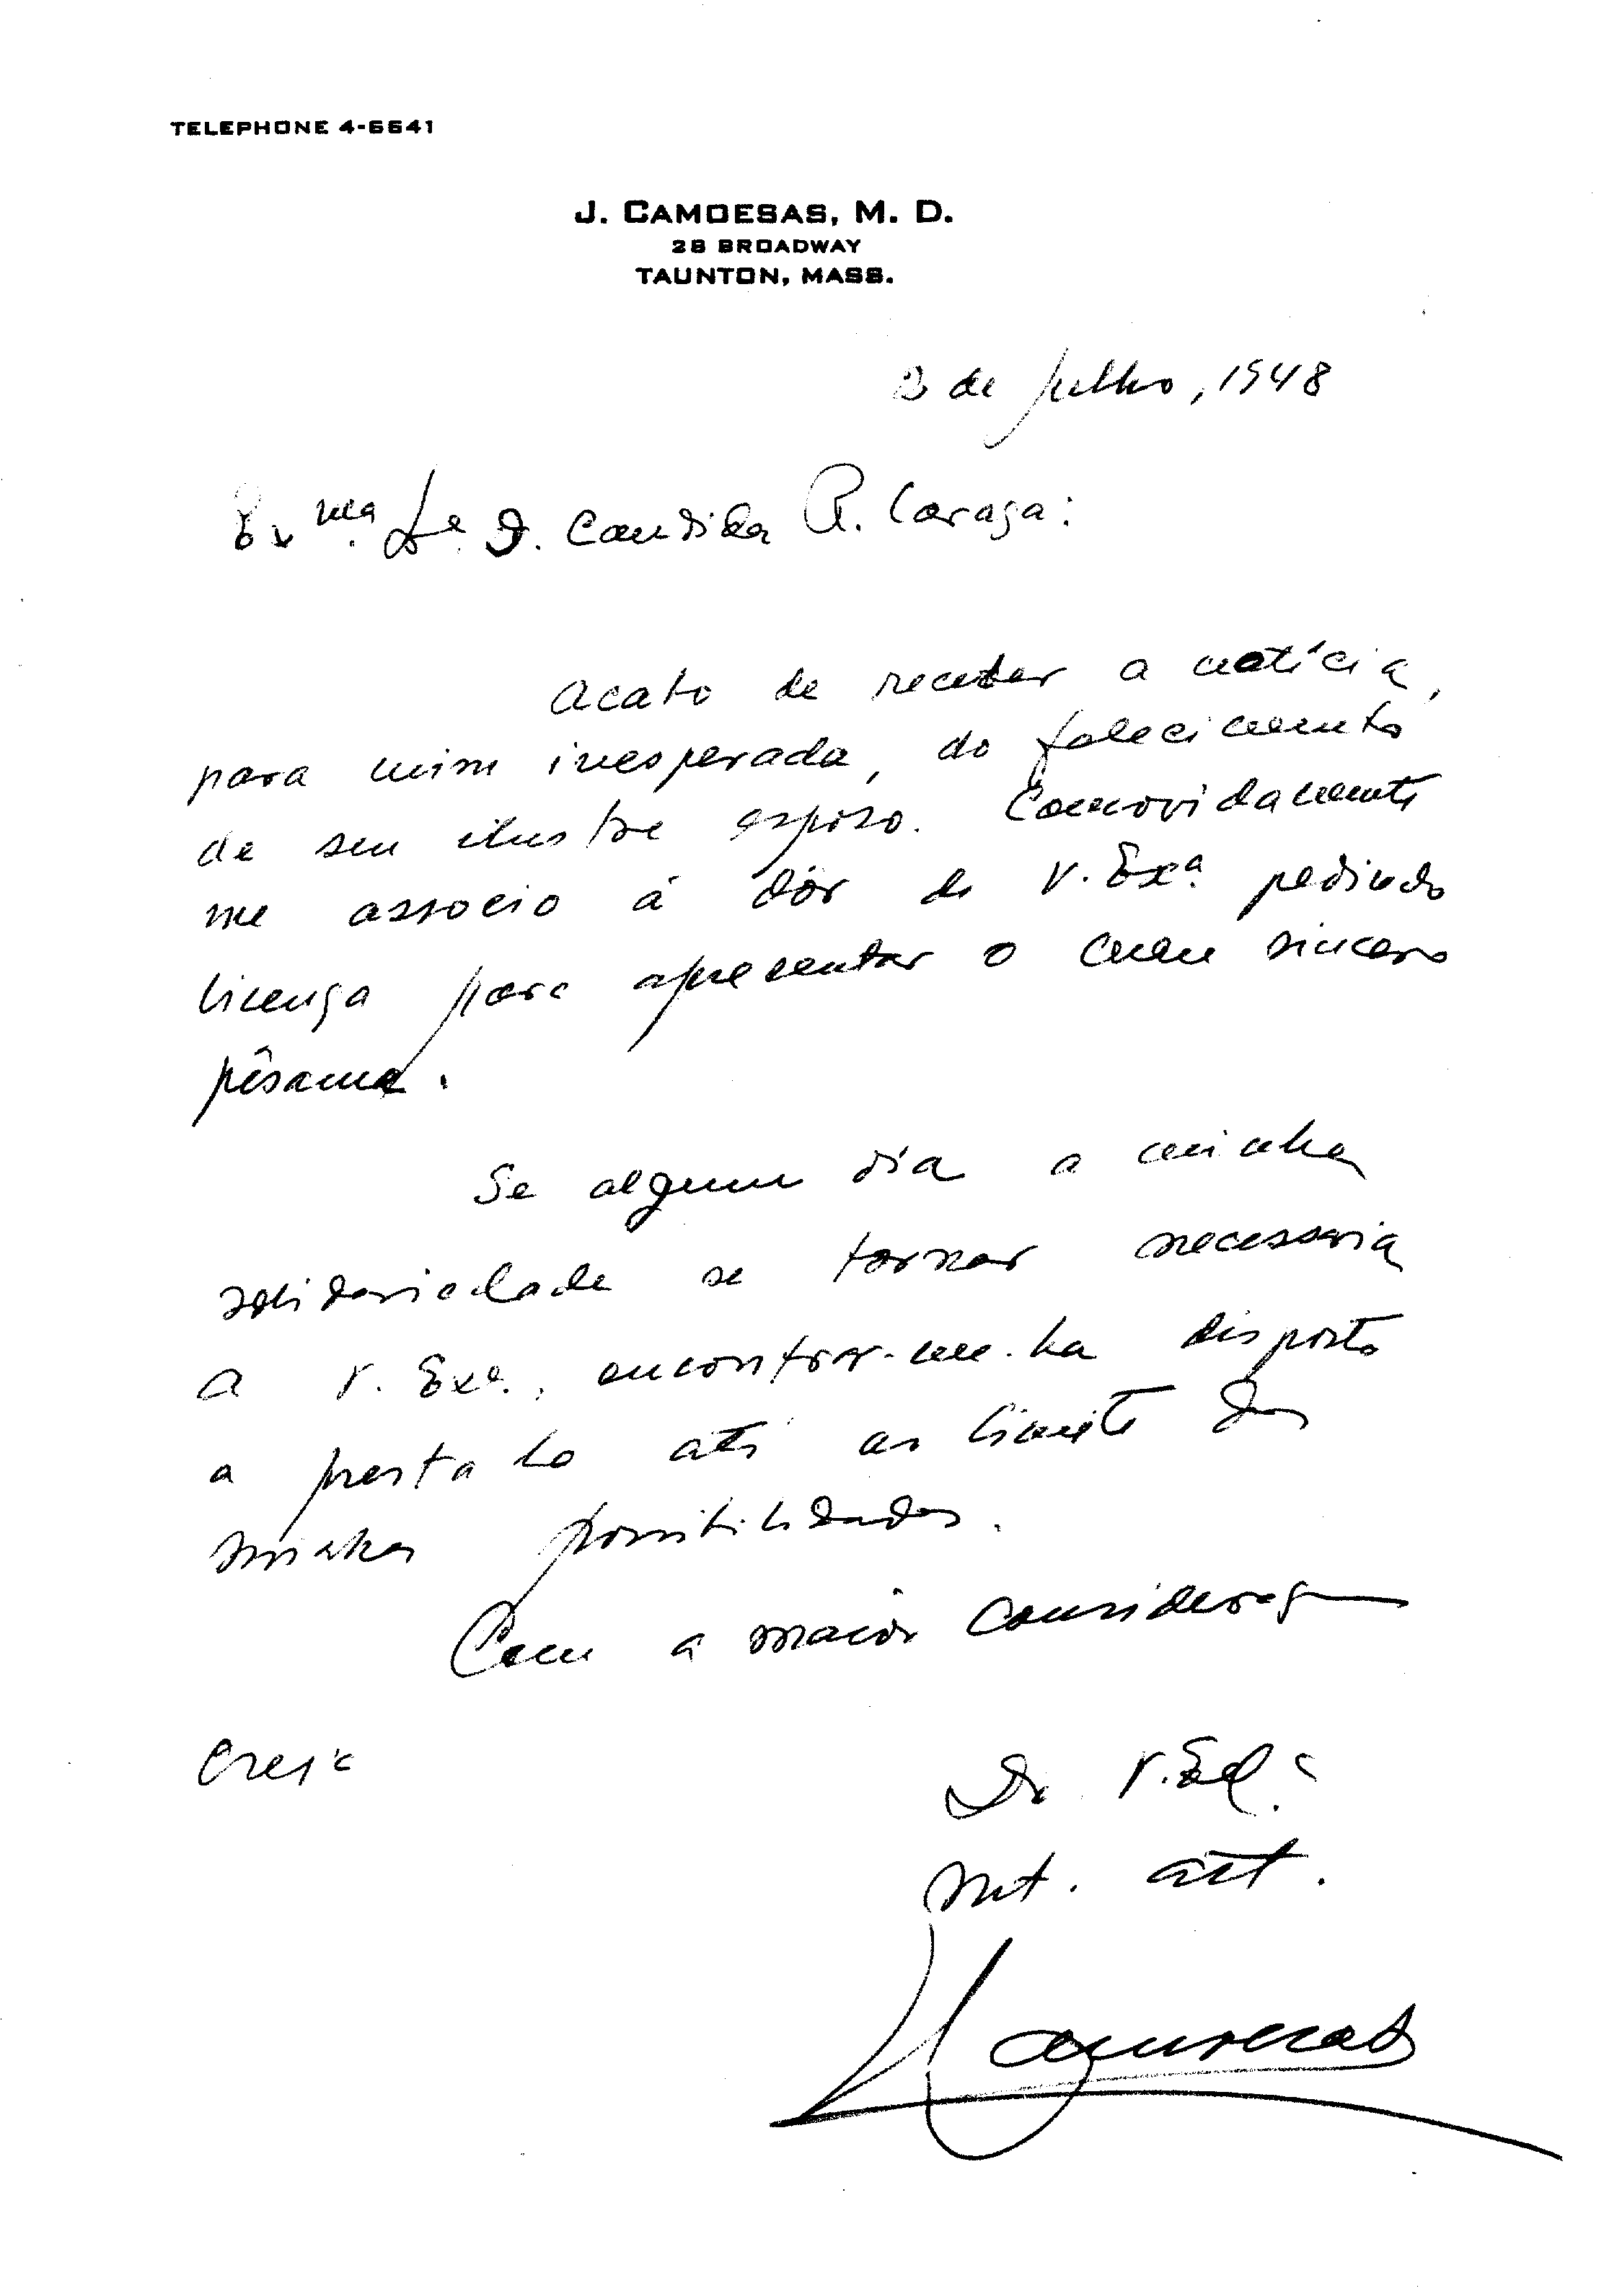 TELEPHONE 4-6641
J. CAMOESAS, M. D.
28 BROADWAY
TAUNTON, MASS.
2 de Julho, 1948
Exma. Sra. D. Candida R. Caraça:
Acabo de receber a notícia,
para mim inesperada, do falecimento
de seu ilustre esposo. Comovidamente
me associo á dôr de V. Exa. pedindo
licença para apresentar o meu sincero
pêsame.
Se algum dia a minha
solidariedade se tornar necessaria
a V. Exa., encontrar-me-ha disposto
a presta lo até ao limite das
minhas possibilidades.
Com a maior consideração
Cresc
De V. Exa.
Mt. att.
Camoesas